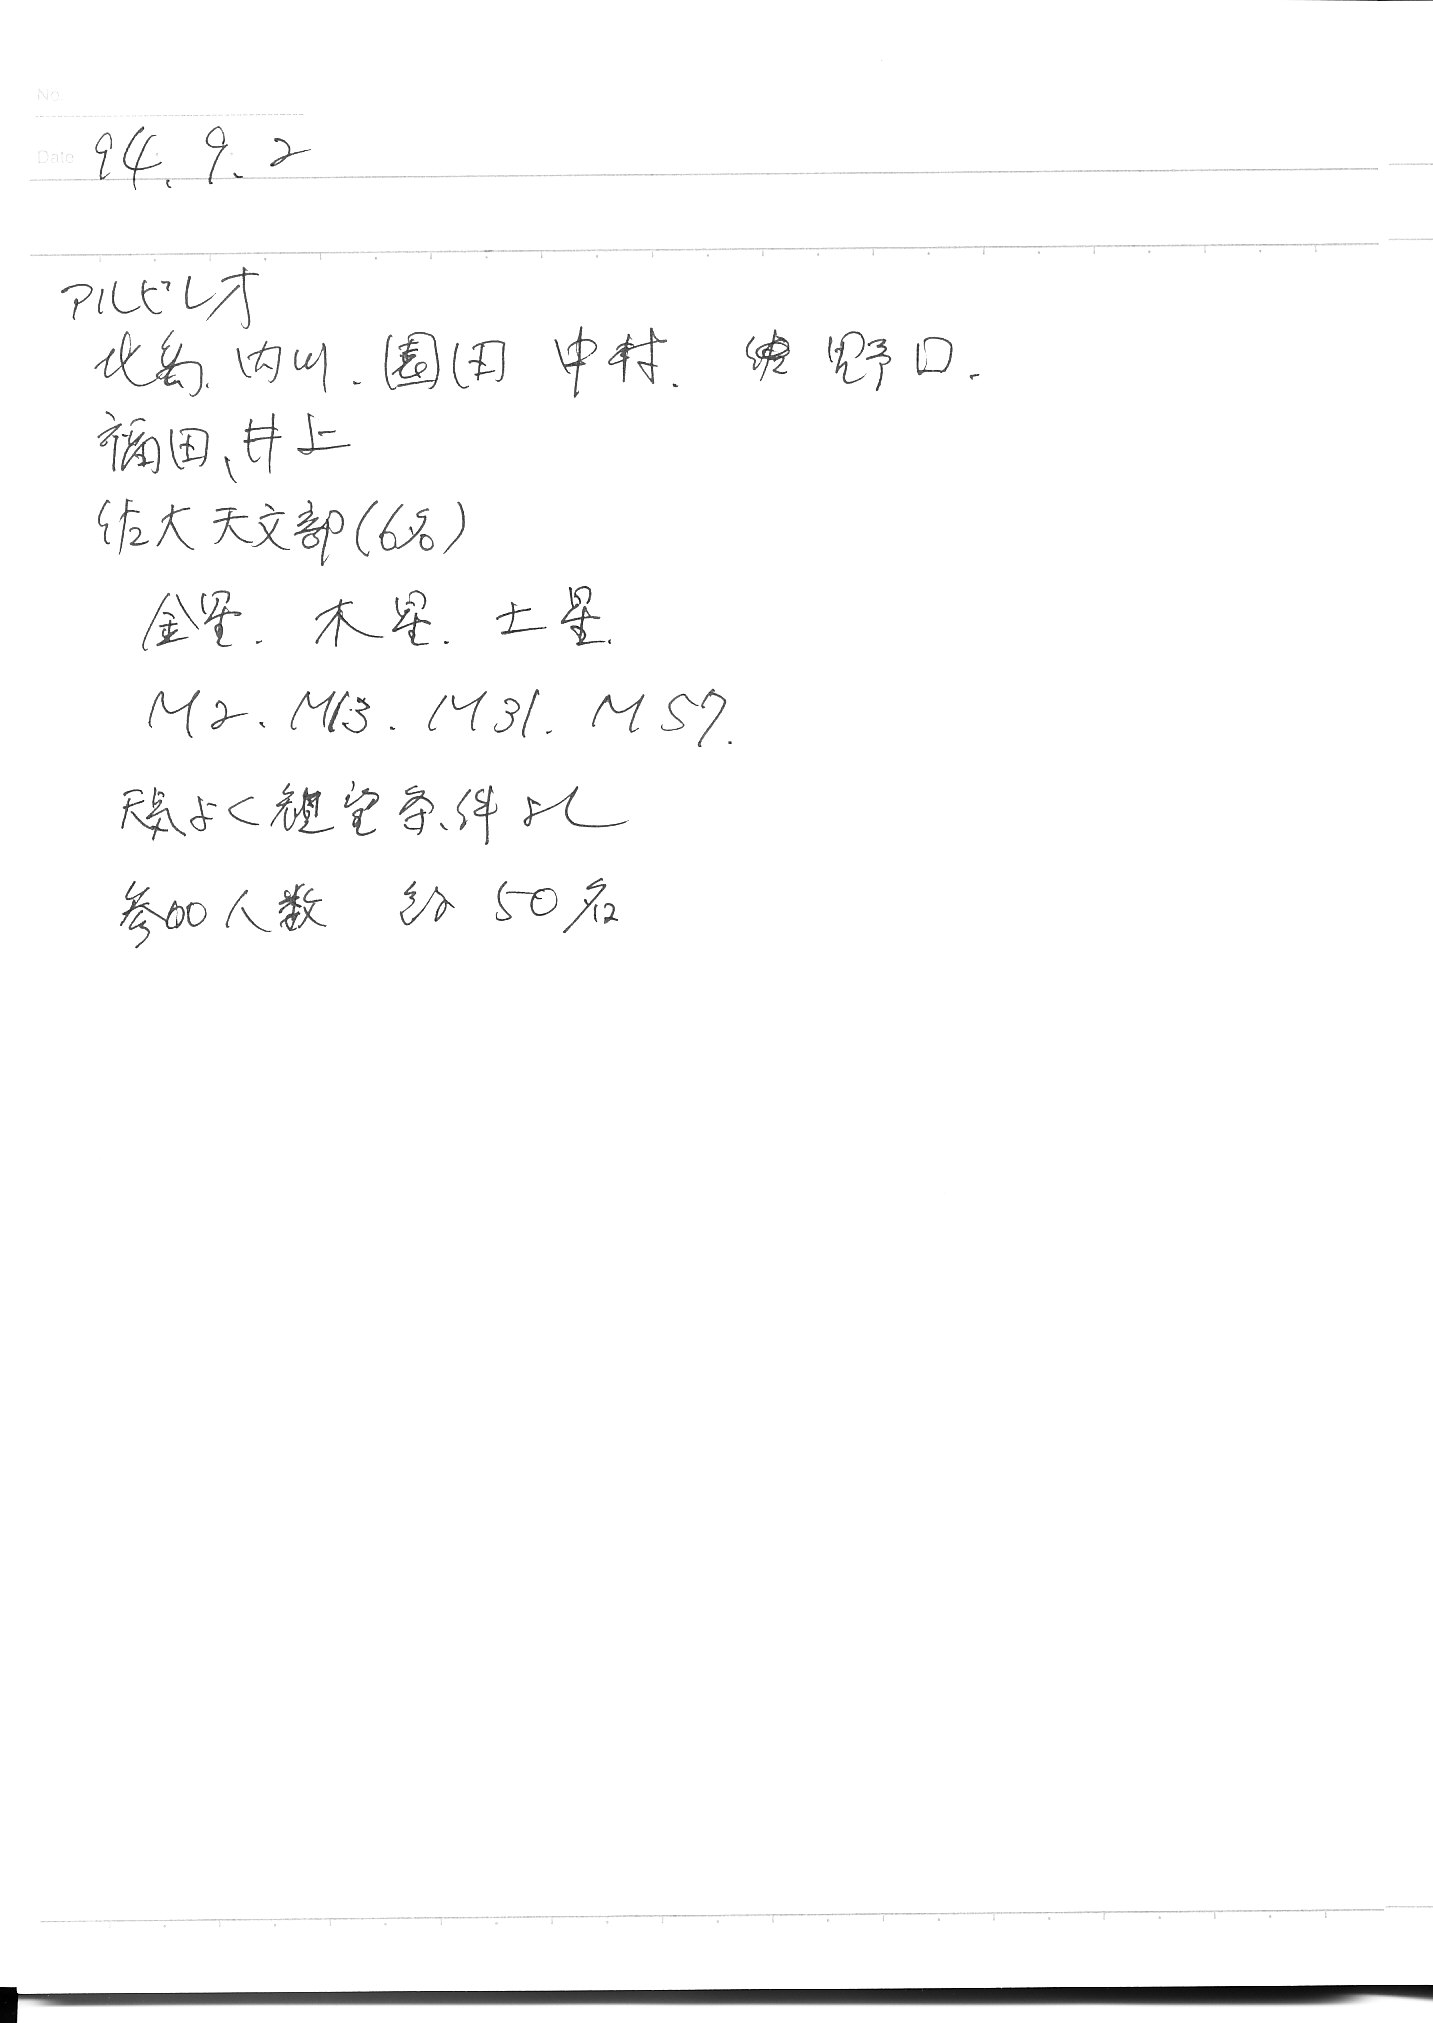 No.
Date 94. 9. 2
アルビレオ
北島、内川、園田 中村、 野口、
福田、井上
佐大天文部(6名)
金星、木星、土星、
M2、M13、M31、M57、
天気よく観望条件よし
参加人数 約50名